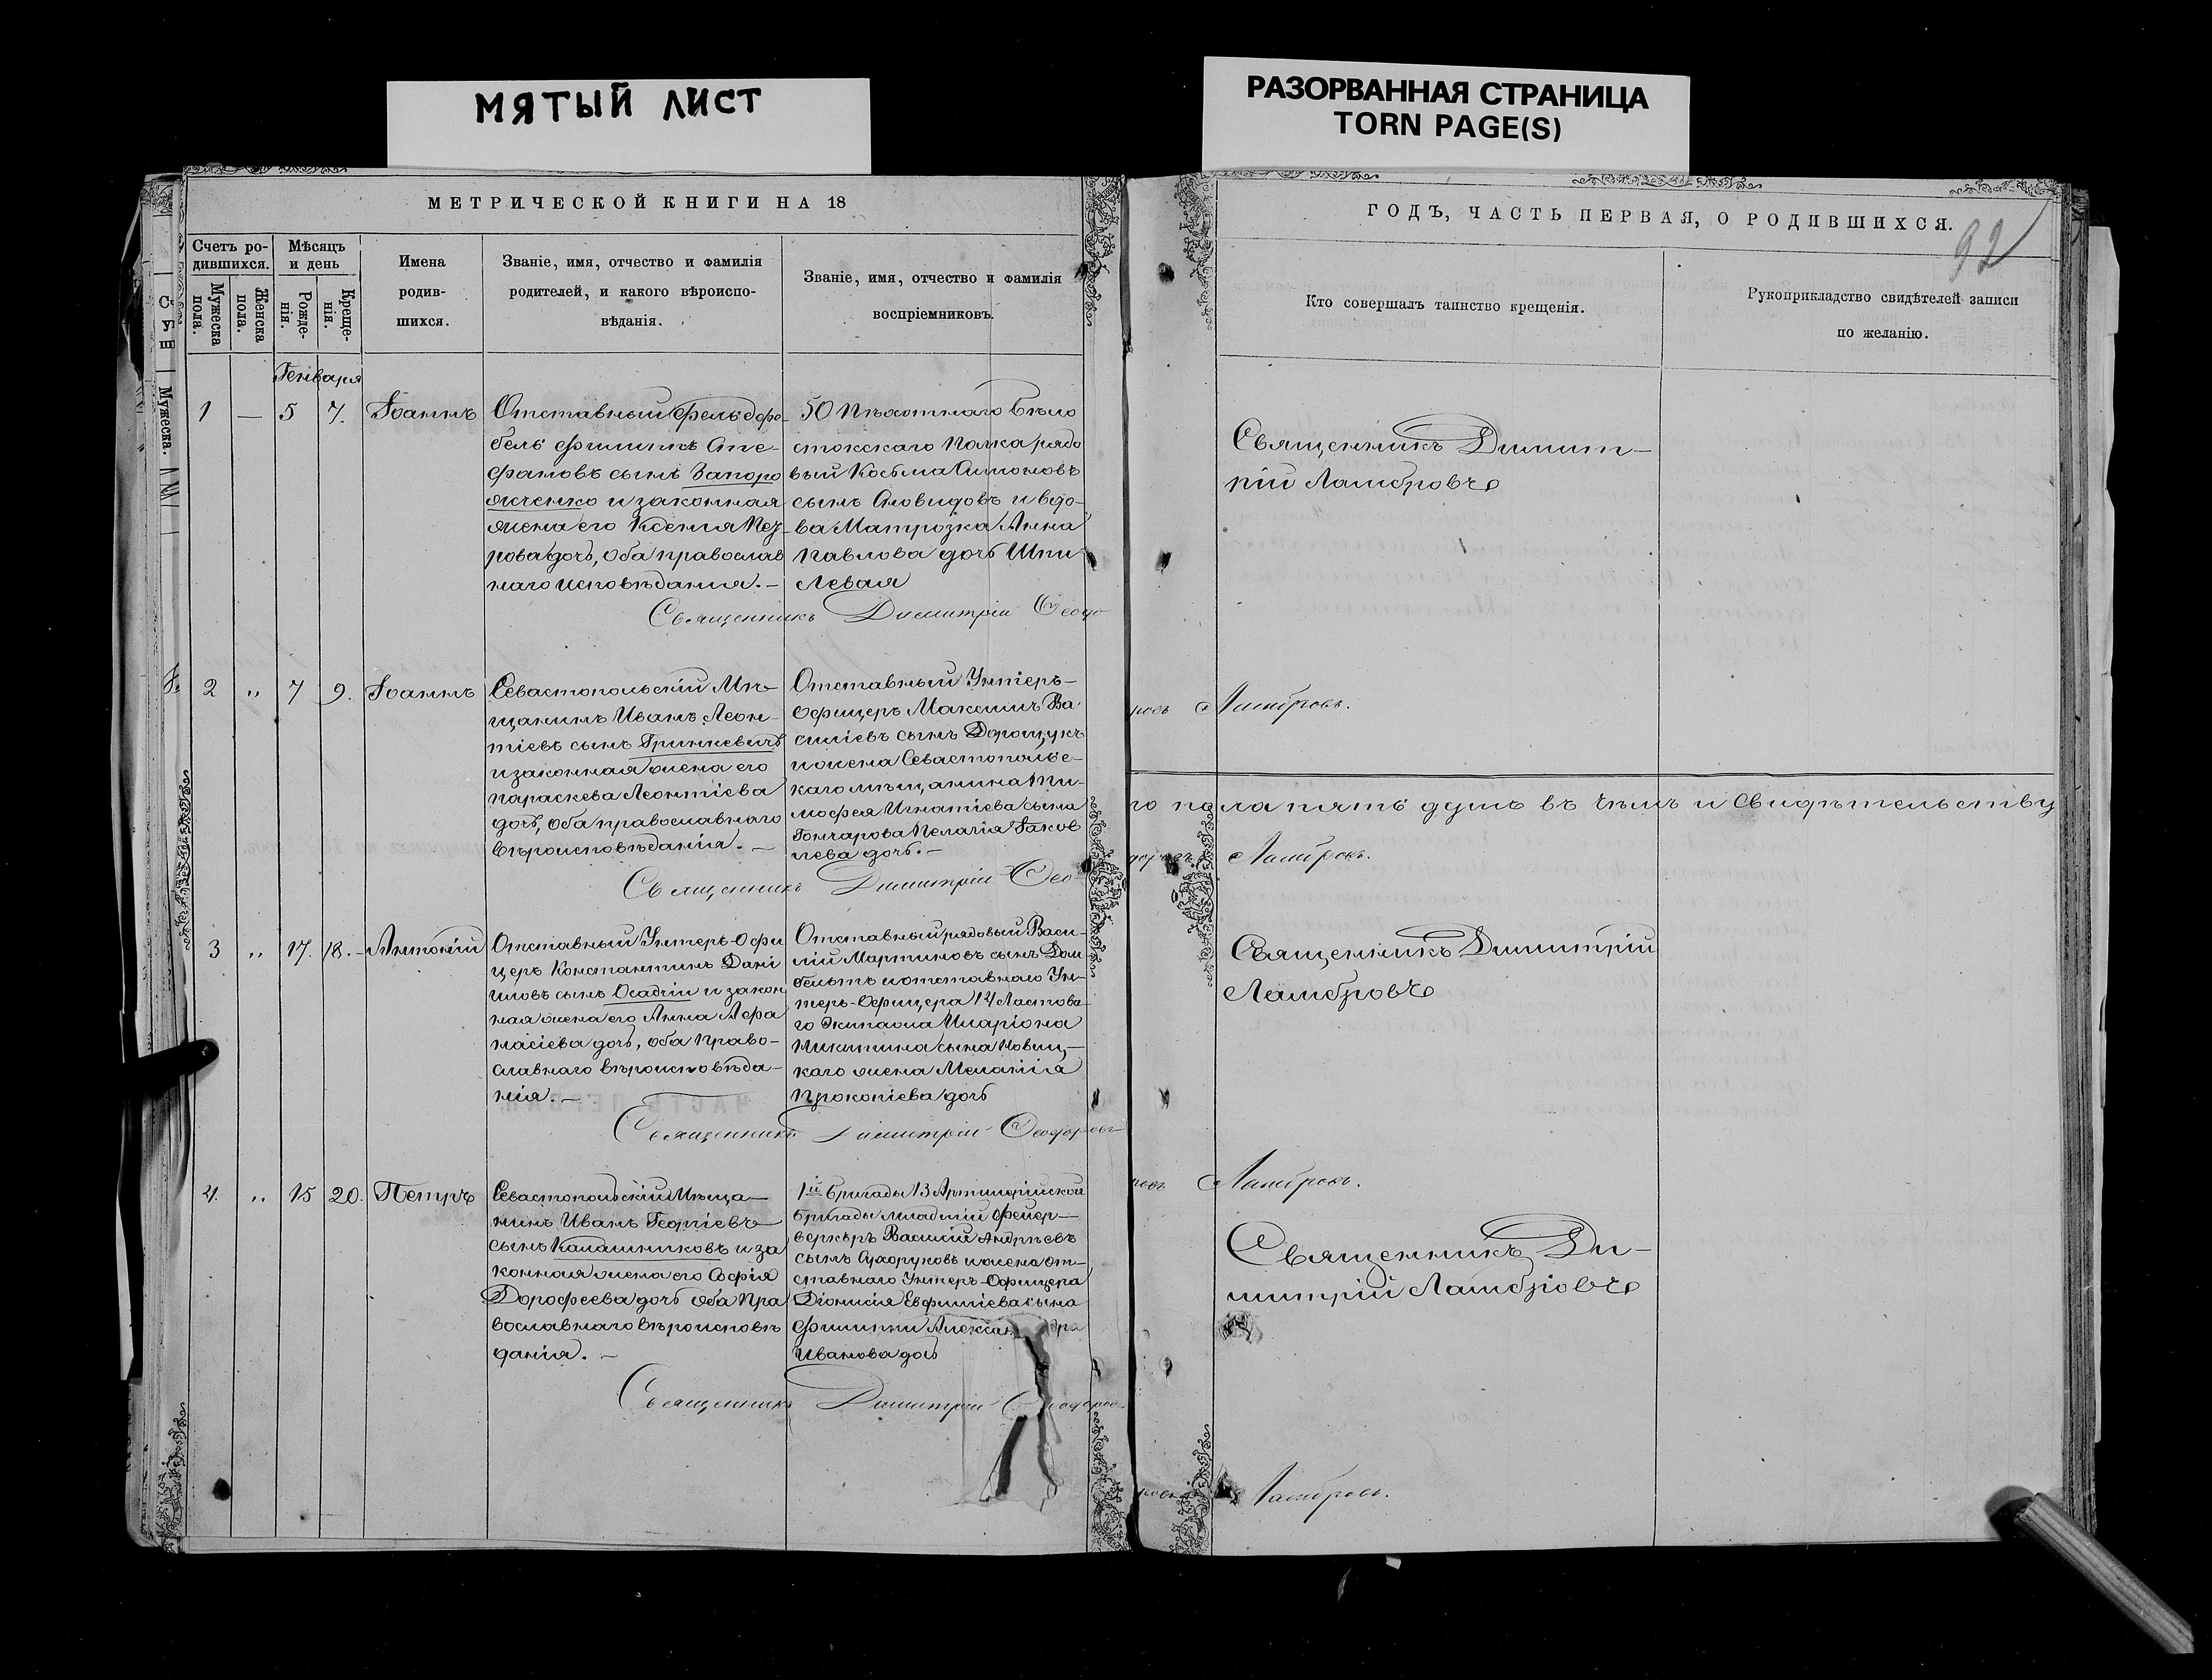 МЯТЫЙ ЛИСТ
РАЗОРВАННАЯ СТРАНИЦА
TORN PAGE(S)
МЕТРИЧЕСКОЙ КНИГИ НА 18
ГОДЪ, ЧАСТЬ ПЕРВАЯ, О РОДИВШИХСЯ.
92
Счетъ ро-
дившихся.
Мужеска
пола.
Женска
пола.
Мѣсяцъ
и день
Рожде-
нія.
Креще-
нія.
Имена
родив-
шихся.
Званіе, имя, отчество и фамилія
родителей, и какого вѣроиспо-
вѣданія.
Званіе, имя, отчество и фамилія
воспріемниковъ.
Кто совершалъ таинство крещенія.
Рукоприкладство свидѣтелей записи
по желанію.
Мужеска.
Генваря
1 — 5 7. Іоаннъ
Отставный Фельдфе-
бель Филиппъ Сте-
фановъ сынъ Запоро
жченко и законная
жена его Ксенія
дочь, оба православ
наго исповѣданія. —
50 Пѣхотнаго Бѣло
стокскаго Полка рядо
вый Косьма Симоновъ
сынъ и вдо-
ва Матрозка Анна
Павлова дочь Шпи
левая
Священникъ Димит-
рій Ламбровъ
Священникъ Димитрій Ѳеодо
ровъ Ламбровъ.
2 „ 7 9. Іоаннъ
Севастопольскій Мѣ-
щанинъ Иванъ Леон-
тіевъ сынъ Гринкевичъ
и законная жена его
Параскева Леонтіева
дочь, оба православнаго
вѣроисповѣданія. —
Отставный Унтеръ-
Офицеръ Максимъ Ва
силіевъ сынъ Дорощукъ
и жена Севастопольс-
каго мѣщанина Ти-
мофея Игнатіева сына
Гончарова Пелагія Іаков
лева дочь. —
го пола пять душъ въ чемъ и свидѣтельству
Священникъ Димитрій Ѳео-
доровъ Ламбровъ.
3 „ 17. 18. — Антоній
Отставный Унтеръ-Офи
церъ Константинъ Дані
иловъ сынъ Осадчій и закон
ная жена его Анна Афа
насіева дочь, оба Право-
славнаго вѣроисповѣда-
нія. —
Отставный рядовый Васи-
лій Мартиновъ сынъ
и отставнаго Ун-
теръ-Офицера 14 Ластова
го Экипажа Иларіона
Никитина сына Новиц-
каго жена Меланія
Прокопіева дочь
Священникъ Димитрій
Ламбровъ
Священникъ Димитрій Ѳеодоров
ровъ Ламбровъ.
4. „ 15 20. Петръ
Севастопольскій Мѣща-
нинъ Иванъ Георгіевъ
сынъ Калашниковъ и за
конная жена его Софія
Дорофеева дочь оба Пра
вославнаго вѣроисповѣ
данія. —
1й Бригады 13 Артилерійской
Бригады младшій Фейер-
веркеръ Василій Андреевъ
сынъ Сухоруковъ и жена от-
ставнаго Унтеръ-Офицера
Діонисія Евфиміева сына
Филиппи Александра
Иванова дочь
Священникъ Ди-
митрій Ламбровъ
Священникъ Димитрій Ѳеодоров
ровъ Ламбровъ.